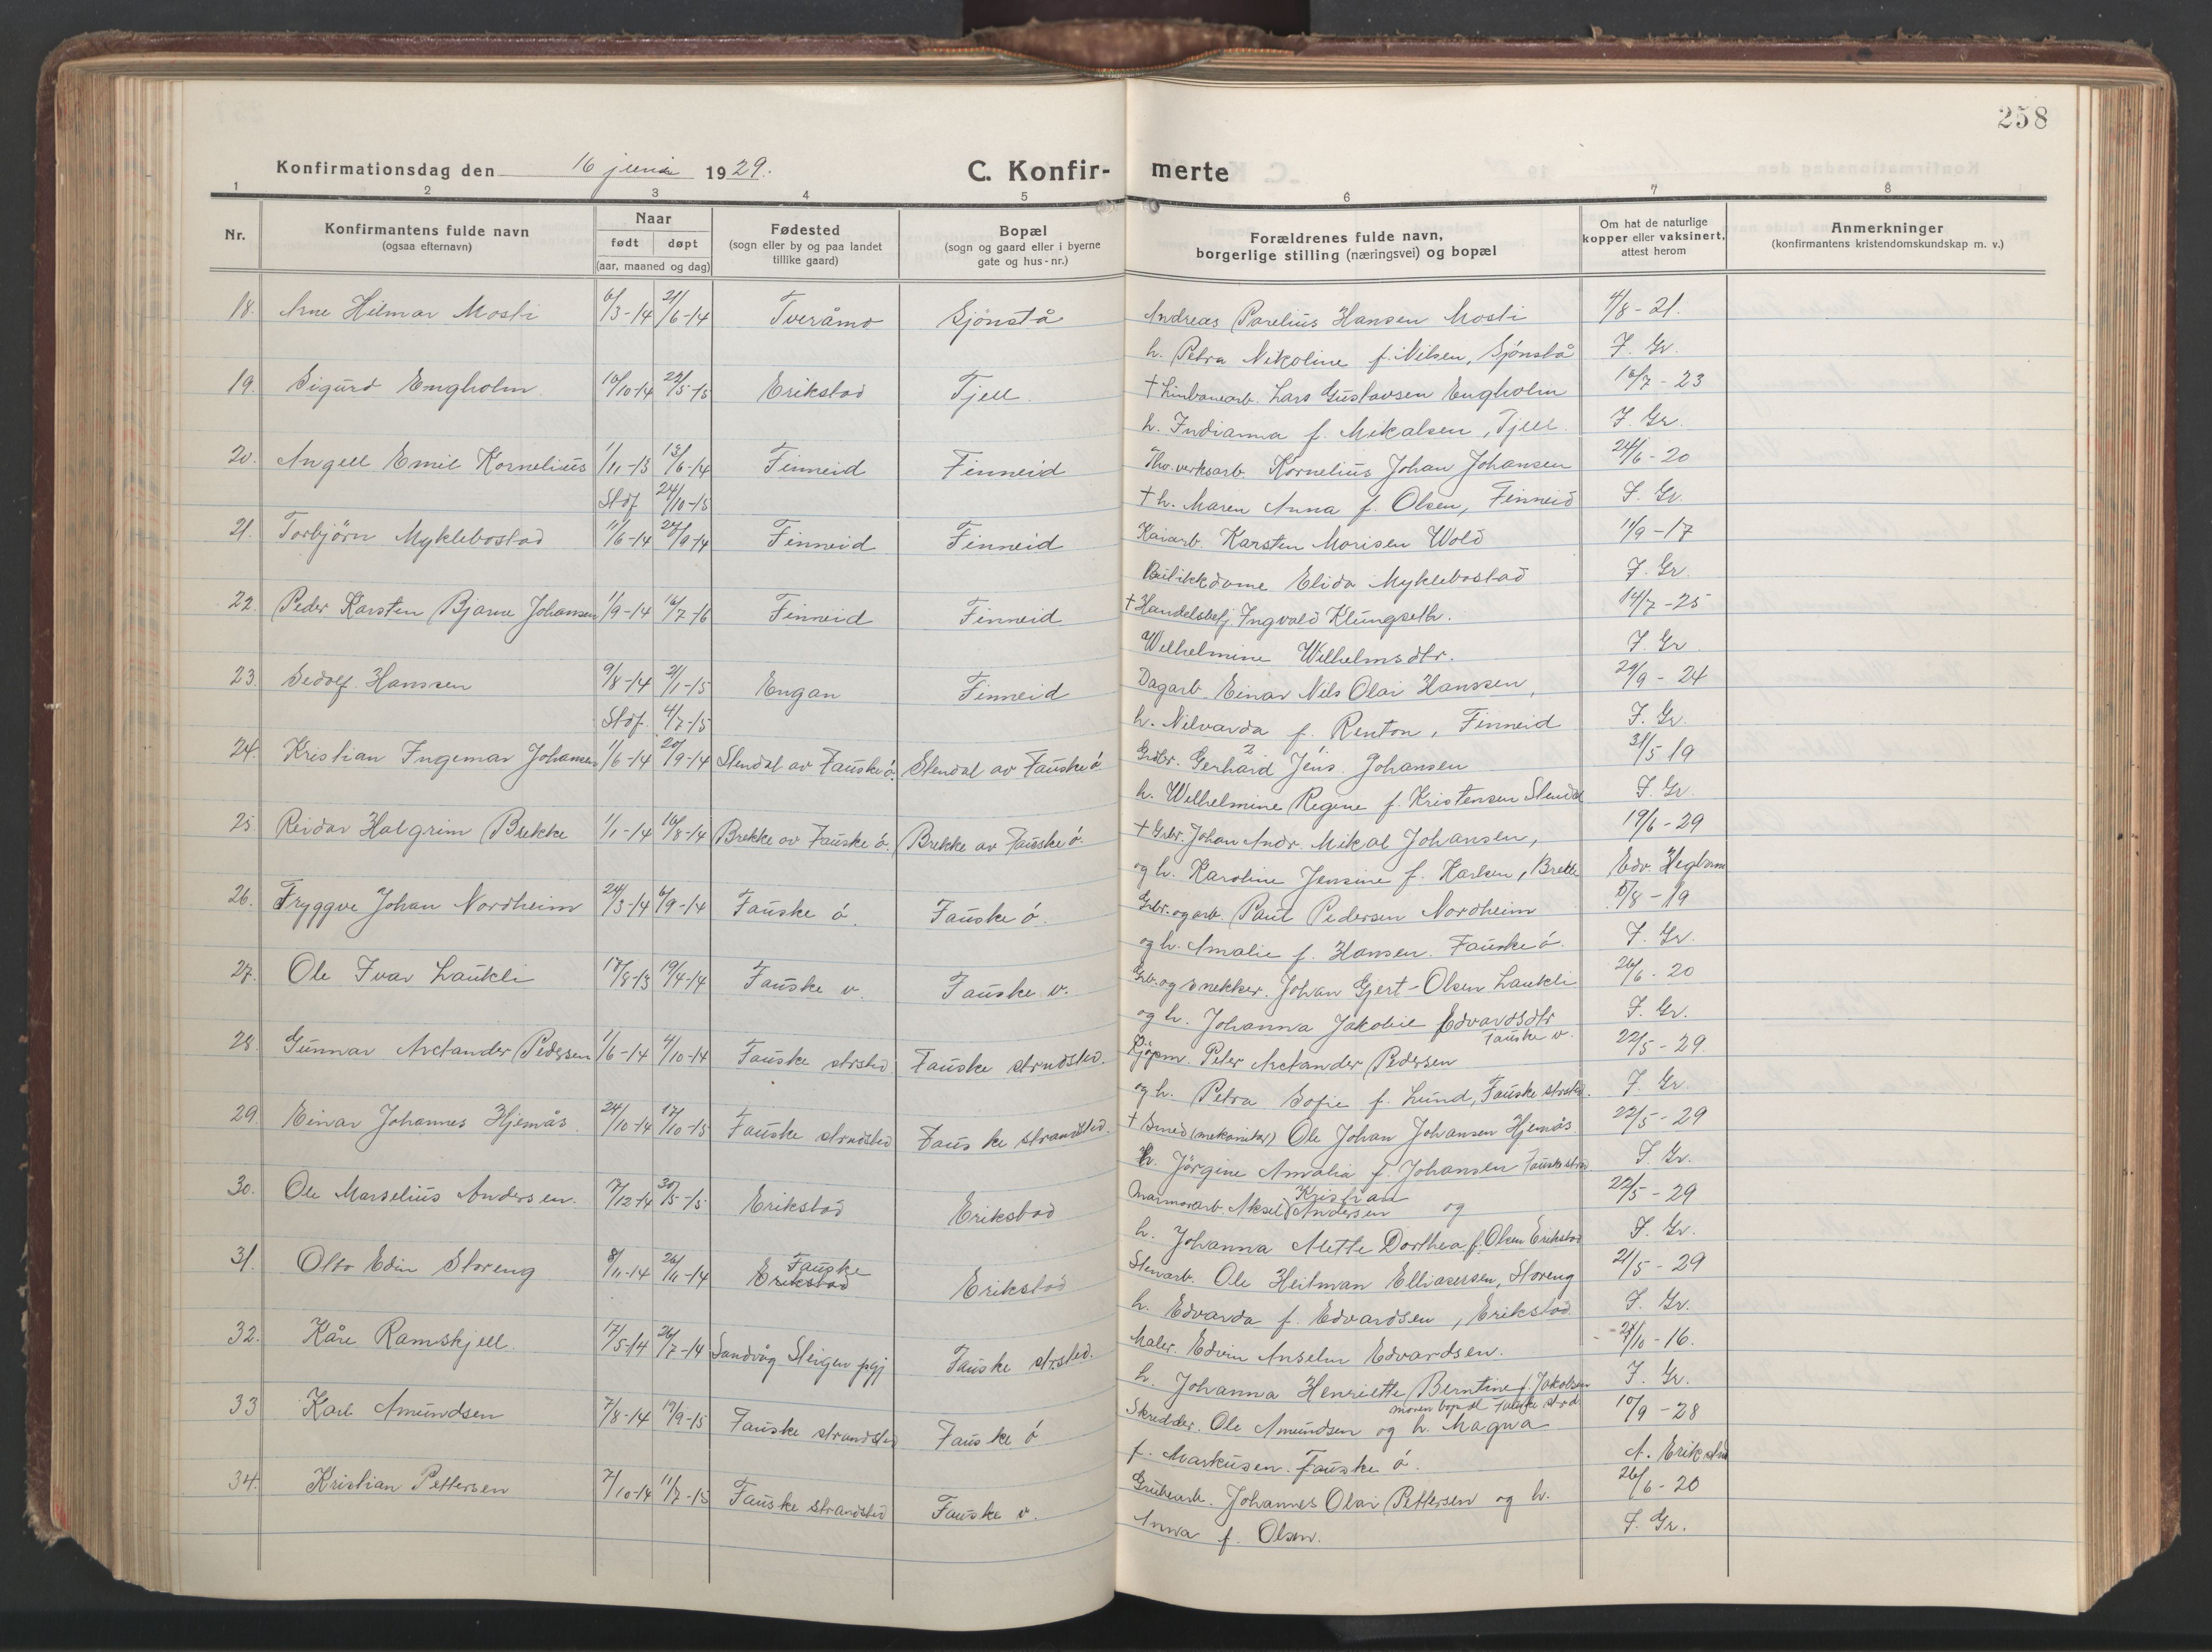 258
Konfirmationsdag den 16 juni 1929.
C. Konfir-merte
1 2 3 4 5 6 7 8
Nr.
Konfirmantens fulde navn
(ogsaa efternavn)
Naar
født døpt
(aar, maaned og dag)
Fødested
(sogn eller by og paa landet
tillike gaard)
Bopæl
(sogn og gaard eller i byerne
gate og hus-nr.)
Forældrenes fulde navn,
borgerlige stilling (næringsvei) og bopæl
Om hat de naturlige
kopper eller vaksinert,
attest herom
Anmerkninger
(konfirmantens kristendomskundskap m. v.)
18. Arne Hilmar Mosti 6/3-14 21/6-14 Tveråmo Sjönstå Andreas Parelius Hansen Mosti 4/8-21.
h. Petra Nikoline f. Nilsen, Sjönstå F. Gr.
19. Sigurd Engholm 10/10-14 22/5-15 Erikstad Tjell. † Linbanearb. Lars Gustavsen Engholm 16/7-23
h. Indianna f. Mikalsen, Tjell. F. Gr.
20. Angell Emil Kornelius 1/11-13 13/6-14 Finneid Finneid Thv. verksarb. Kornelius Johan Johansen 24/6-20
Stdf. 24/10-15 † h. Maren Anna f. Olsen, Finneid F. Gr.
21. Torbjörn Myklebostad 11/6-14 20/9-14 Finneid Finneid Kaiarb. Karsten Morisen Wold 11/9-17
Butikkdame Elida Myklebostad F. Gr.
22. Peder Karsten Bjarne Johansen 1/9-14 16/7-16 Finneid Finneid † Handelsbetj. Ingvald Klungseth. 14/7-25
Wilhelmine Wilhelmsdtr. F. Gr.
23. Sedolf Hanssen 9/8-14 2/1-15 Engan Finneid Dagarb. Einar Nils Olai Hanssen, 29/9-24
Stdf. 4/7-15 h. Nilvarda f. Renton, Finneid F. Gr.
24. Kristian Ingemar Johansen 1/6-14 20/9-14 Stendal av Fauske ö. Stendal av Fauske ö Grdbr. Gerhard Jens Johansen 31/5 19
h. Wilhelmine Regine f. Kristensen Stendal F. Gr.
25. Reidar Halgrim Brekke 1/1-14 16/8-14 Brekke av Fauske ö. Brekke av Fauske ö. † Grbr. Johan Andr. Mikal Johansen, 19/6-29
og h. Karoline Jensine f. Karlsen, Brekke Edv.
26. Tryggve Johan Nordheim 24/3-14 6/9-14 Fauske ö. Fauske ö. Grbr. og arb. Paul Pedersen Nordheim 5/8-19
og h. Amalie f. Hansen. Fauske ö. F. Gr.
27. Ole Ivar Laukli 17/8-13 19/4-14 Fauske v. Fauske v. Grbr. og snekker. Johan Gjert-Olsen Laukli 26/6-20
og h. Johanna Jakobie Edvardsdtr F. Gr.
Fauske v.
28. Gunnar Arctander Pedersen 1/6-14 4/10-14 Fauske strsted. Fauske strndsted. Kjöpm. Peter Arctander Pedersen 22/5-29.
og h. Petra Sofie f. Lund, Fauske strsted. F. Gr.
29. Einar Johannes Hjemås. 24/10-14 17/10-15 Fauske strndsted Fauske strandsted. † Smed (mekaniker) Ole Johan Johansen Hjemås 22/5-29
h. Jörgine Amalia f. Johansen Fauske strnd F. Gr.
30. Ole Marselius Andersen. 7/12-14 30/5-15 Erikstad Erikstad Marmorarb. Aksel Kristian Andersen og 22/5-29
h. Johanna Mette Dorthea f. Olsen Erikstad F. Gr.
31. Otto Edin Storeng 8/11-14 26/11-14 Fauske Erikstad Erikstad Stenarb. Ole Heitman Elliasersen, Storeng 21/5-29
h. Edvarda f. Edvardsen, Erikstad. F. Gr.
32. Kåre Ramskjell. 17/5-14 26/7-14 Sandvåg Steigen pgj Fauske strsted. Maler. Edvin Anselm Edvardsen. 27/10-16.
h. Johanna Henriette Berntine f. Jakobsen F. Gr.
moren bopæl Fauske strd.
33 Karl Amundsen 7/8-14 19/9-15 Fauske strandsted Fauske ö Skredder. Ole Amundsen og h. Magna 10/9-28
f. Markusen. Fauske ö. A. Erikstad
34. Kristian Pettersen 7/10-14 11/7-15 Fauske strandsted Fauske v. Grubearb. Johannes Olai Pettersen og h. 26/6-20
Anna f. Olsen. F. Gr.